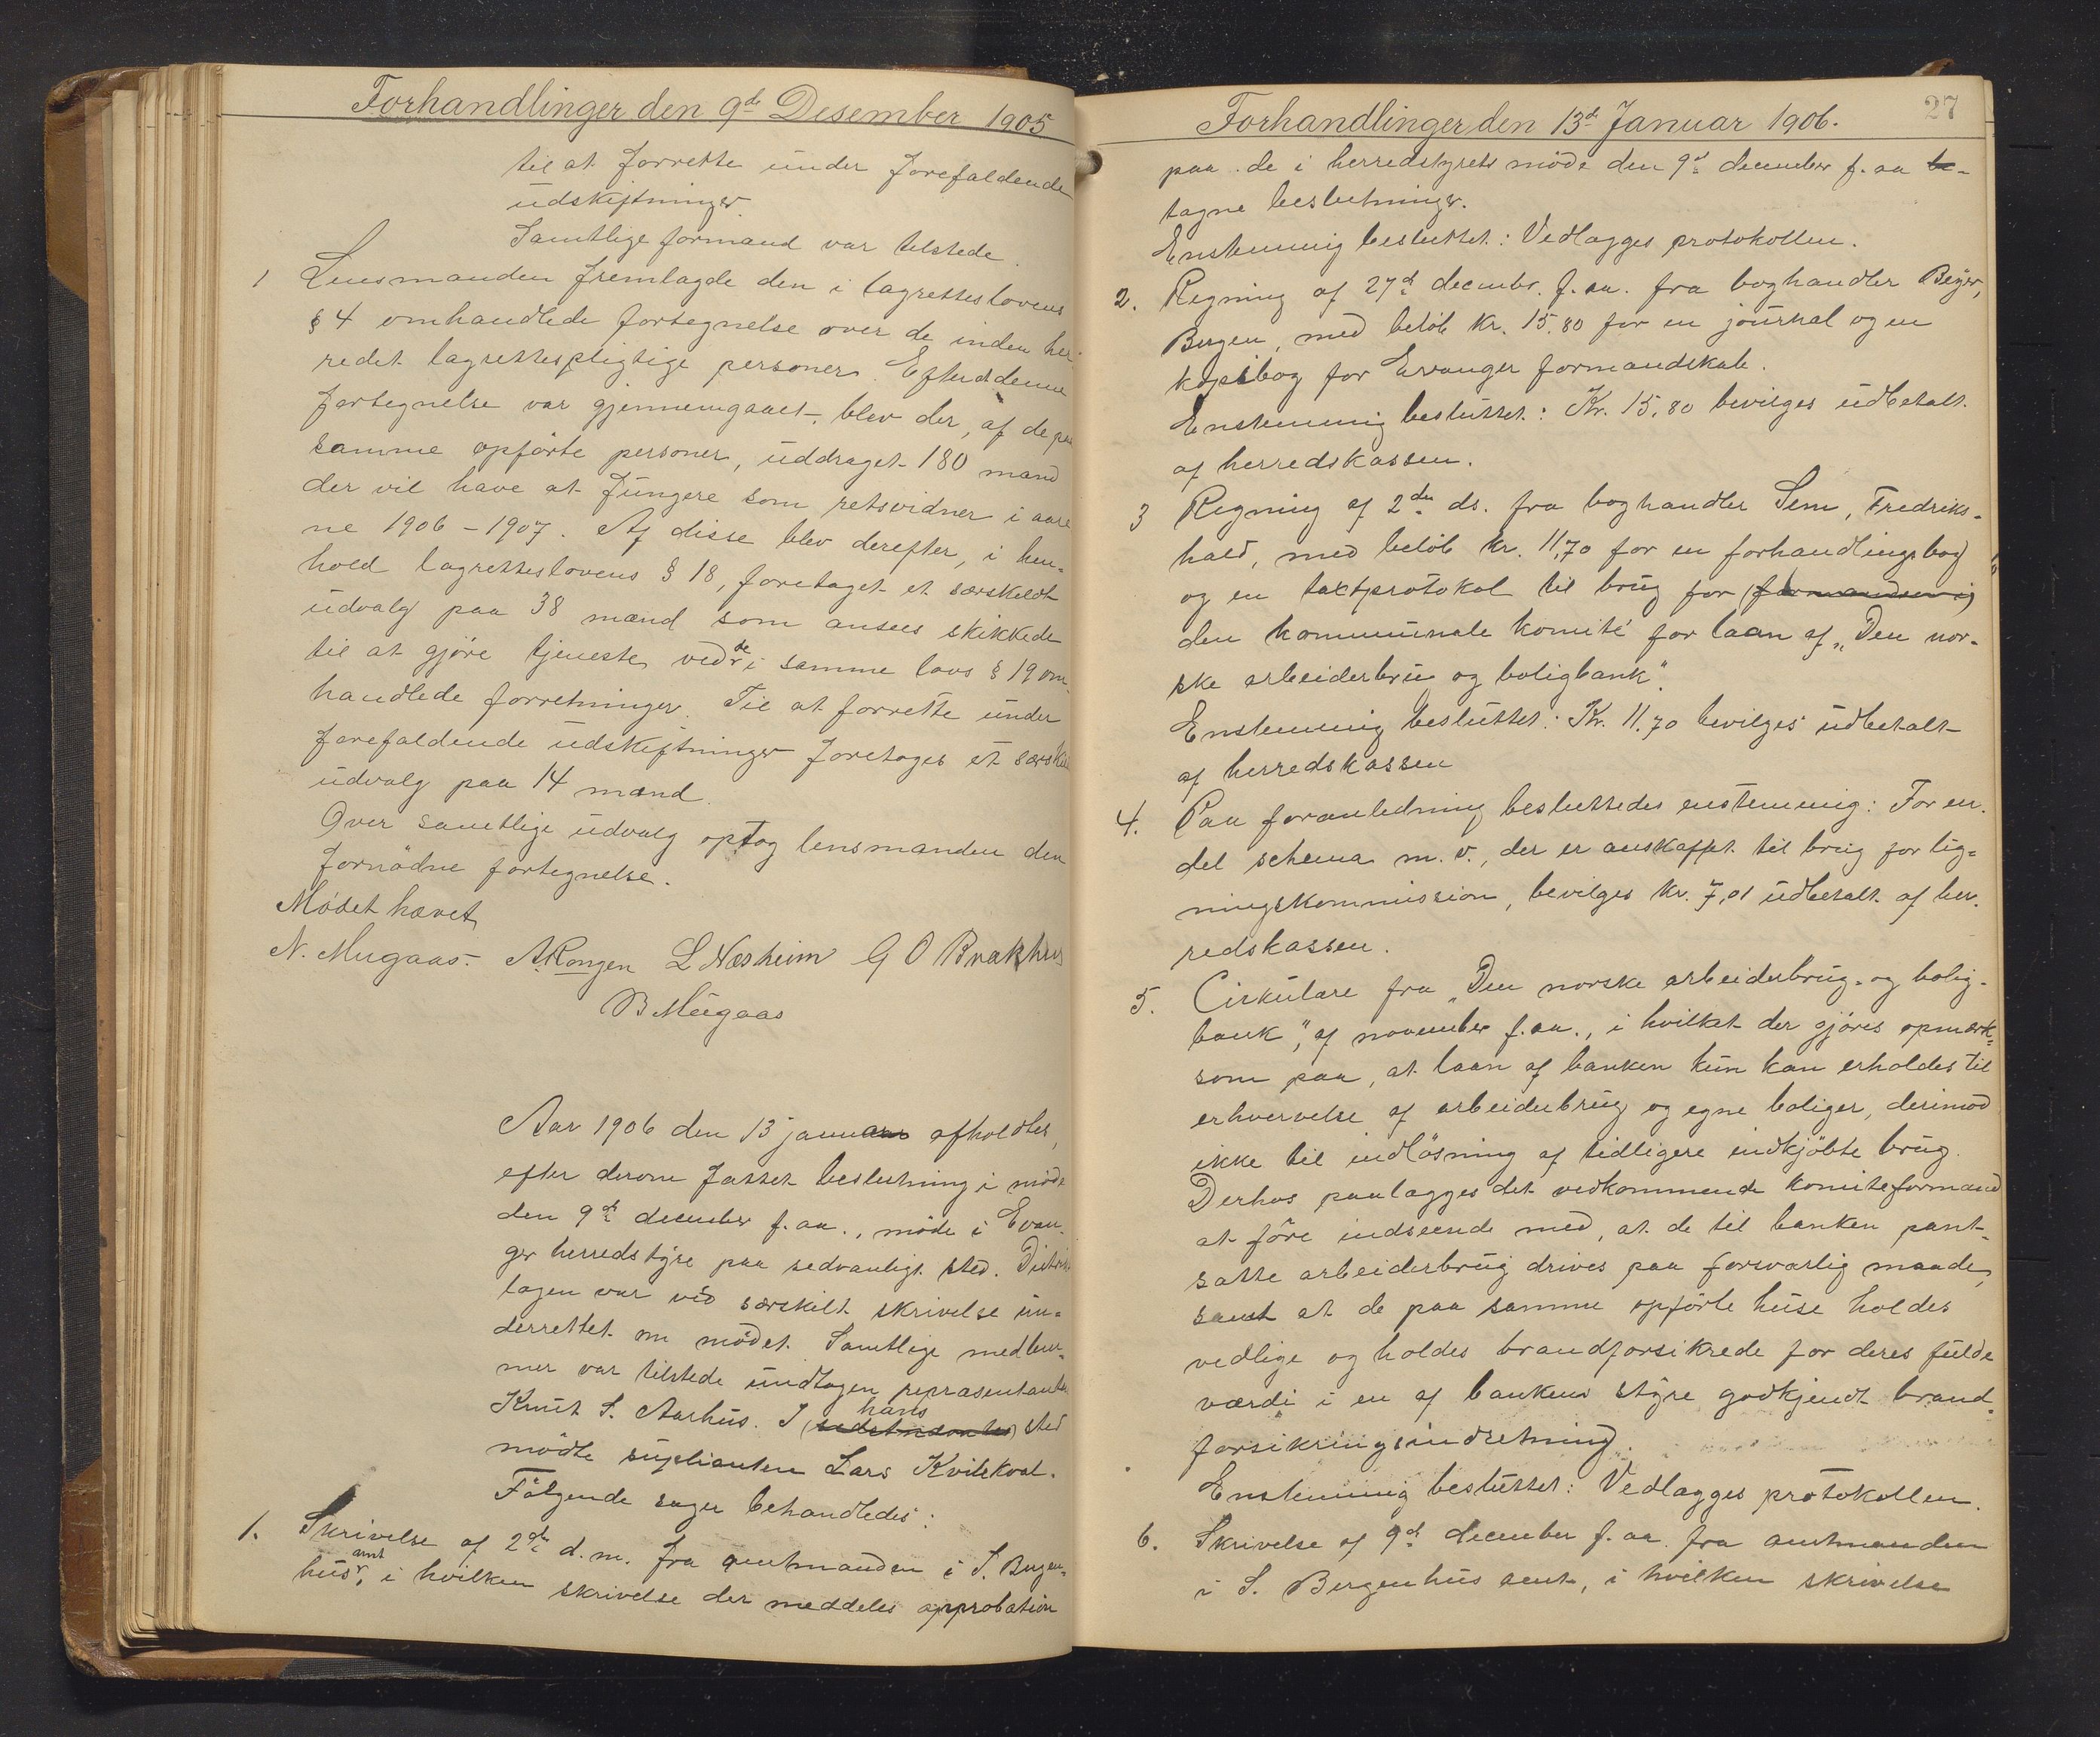 Forhandlinger den 9de Desember 1905
til at forrette under forefaldende
udskiftninger.
Samtlige formænd var tilstede.
1 Lensmanden fremlagde den i lagretteslovens
§ 4 omhandlede fortegnelse over de inden her-
redet lagrettespligtige personer. Efterat denne
fortegnelse var gjennemgaaet, blev der, af de paa
samme opførte personer, uddraget 180 mænd
der vil have at fungere som retsvidner i aare
ne 1906 - 1907. Af disse blev derefter, i hen-
hold lagretteslovens § 18, foretaget et særskildt
udvalg paa 38 mænd som ansees skikkede
til at gjøre tjeneste ved de i samme lovs § 19 om-
handlede forretninger. Til at forrette under
forefaldende udskiftninger foretages et særskilt
udvalg paa 14 mænd.
Over samtlige udvalg optog lensmanden den
fornødne fortegnelse.
Mødet hævet
N. Mugaas. A. Rongen L Næsheim G O Brakhus
B Mugaas
Aar 1906 den 13 januar afholdtes,
efter derom fattet beslutning i møde
den 9de december f. aa., møde i Evan-
ger herredstyre paa sedvanligt sted. Distrikts
lægen var ved særskilt skrivelse un-
derrettet om mødet. Samtlige medlem-
mer var tilstede undtagen repræsentanten
Knut S. Aarhus. I hans sted
mødte suplianten Lars Kvilekval.
Følgende sager behandledes:
1. Skrivelse af 2de d. m. fra amtmanden i S. Bergen-
hus amt, i hvilken skrivelse der meddeles approbation
Forhandlinger den 13de Januar 1906. 27
paa de i herredstyrets møde den 9de december f. aa be-
tagne beslutninger.
Enstemmig besluttet: Vedlægges protokollen.
2. Regning af 27de decembr. f. aa. fra boghandler Beyer,
Bergen, med beløb kr. 15.80 for en journal og en
kopibog for Evanger formandskab.
Enstemmig besluttet: Kr. 15,80 bevilges udbetalt
af herredskassen.
3 Regning af 2den ds. fra boghandler Sem, Fredriks-
hald, med beløb kr. 11,70 for en forhandlingsbog
og en taxtprotokol til brug for
den kommunale komité for laan af „Den nor-
ske arbeiderbrug og boligbank".
Enstemmig besluttet: Kr. 11.70 bevilges udbetalt
af herredskassen
4. Paa foranledning besluttedes enstemmig: For en
del schema m. v., der er anskaffet til brug for lig-
ningskommission, bevilges kr. 7,01 udbetalt af her-
redskassen.
5. Cirkulære fra „Den norske arbeiderbrug- og bolig-
bank", af november f. aa., i hvilket der gjøres opmærk-
som paa, at laan af banken kun kan erholdes til
erhvervelse af arbeiderbrug og egne boliger, derimod
ikke til indløsning af tidligere indkjøbte brug.
Derhos paalægges det vedkommende komiteformand
at føre indseende med, at de til banken pant-
satte arbeiderbrug drives paa forsvarlig maade,
samt at de paa samme opførte huse holdes
vedlige og holdes brandforsikrede for deres fulde
værdi i en af bankens styre godkjendt brand-
forsikringsindretning.
Enstemmig besluttet: Vedlægges protokollen.
6. Skrivelse af 9de december f. aa. fra amtmanden
i S. Bergenhus amt, i hvilken skrivelse